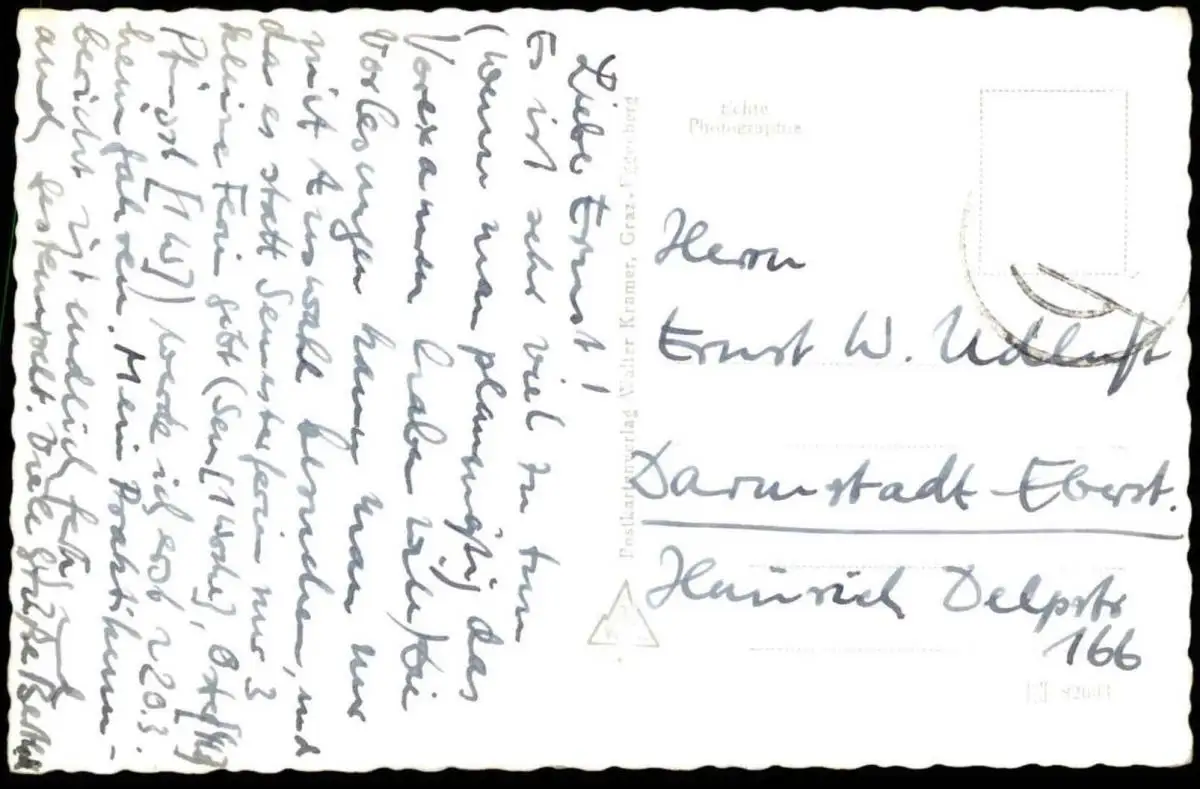 Lieber Ernst!
Es ist sehr viel zu tun
(wenn man planmäßig das
Vorexamen haben will). Die
Vorlesungen kann man nur
mit Auswahl besuchen, und
da es statt Semesterferien nur 3
kleine Ferien gibt (Sem[1 Woche], Oste[1W]
Pfingst [1W]) werde ich erst 20.3.
heimfahren. Mein Praktikum-
bericht ist endlich fertig und
auch bestempelt. Viele Grüße
Echte
Photographie
Postkartenverlag Walter Kramer, Graz-Eggenberg
Herrn
Ernst W. Udluft
Darmstadt-Eberst.
Heinrich Delpstr
166